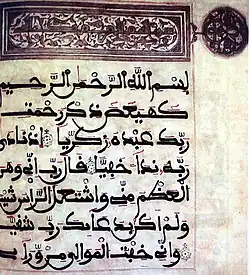 بسم الله الرحمن الرحيم
كهيعص ذكر رحمت
ربك عبده زكريا إذ نادى
ربه نداء خفيا قال رب إني وهن
العظم مني واشتعل الرأس شيبا
ولم أكن بدعائك رب شقيا
وإني خفت الموالي من وراءي